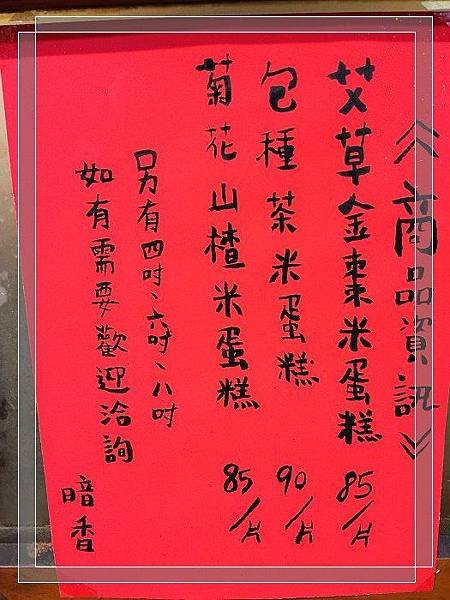 《商品資訊》
艾草金棗米蛋糕 85/片
包種茶米蛋糕 90/片
菊花山楂米蛋糕 85/片
另有四吋、六吋、八吋
如有需要歡迎洽詢
暗香